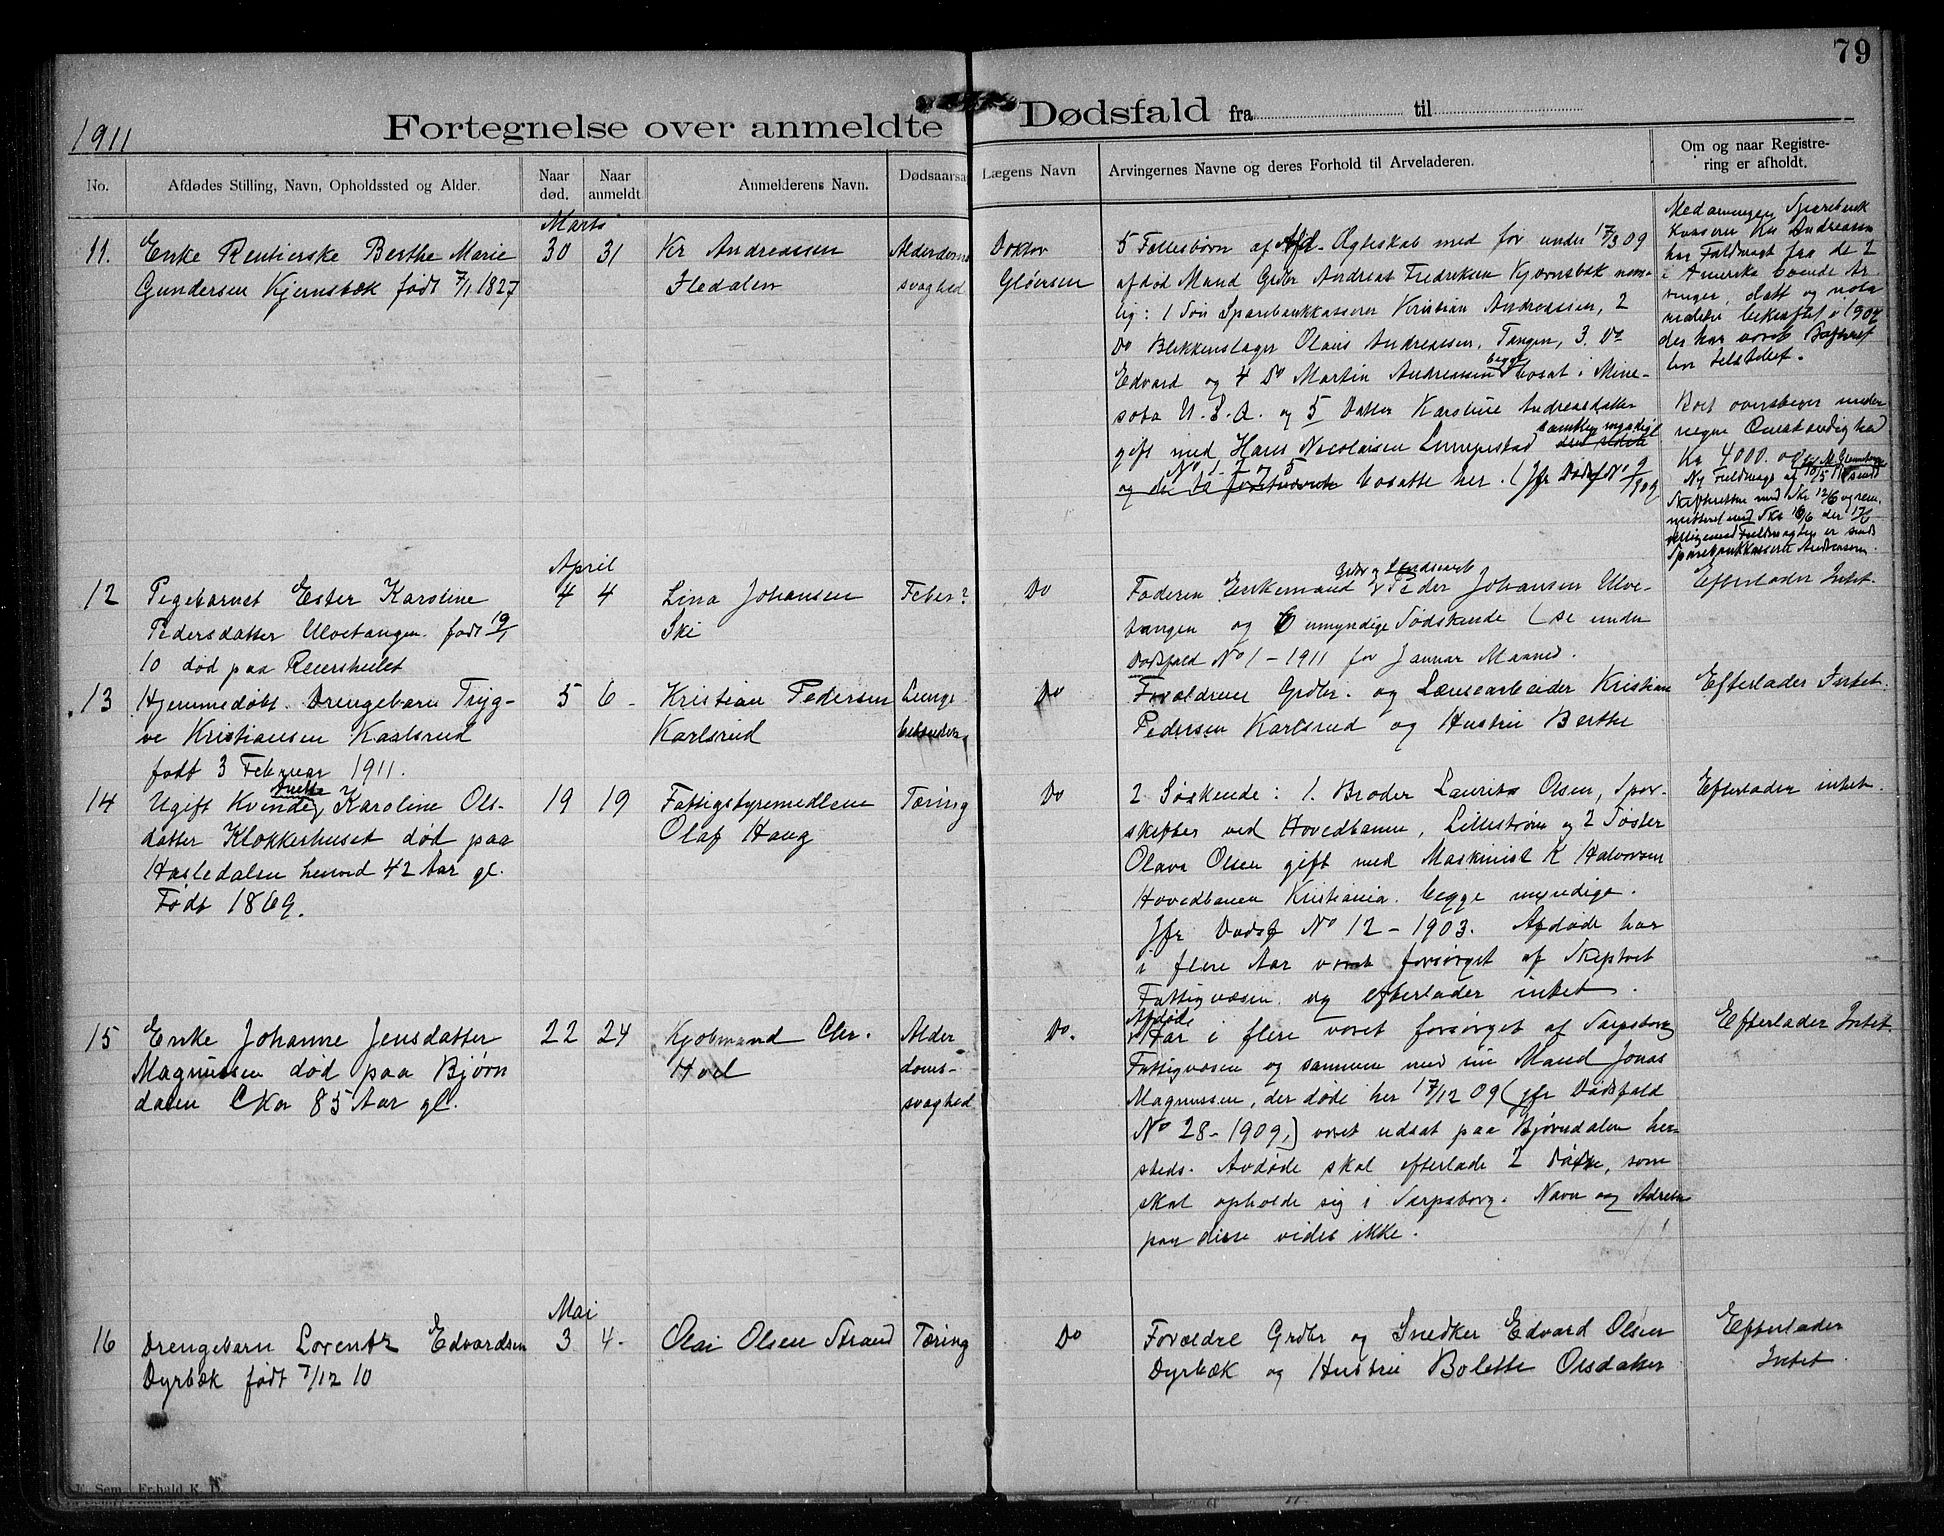 79
1911
Fortegnelse over anmeldte Dødsfald fra til
No.
Afdødes Stilling, Navn, Opholdssted og Alder.
Naar død.
Naar anmeldt
Anmelderens Navn.
Dødsaarsa
Lægens Navn
Arvingernes Navne og deres Forhold til Arveladeren.
Om og naar Registre-
ring er afholdt.
Marts
11. Enke Rentierske Berthe Marie
Gundersen Kjernsbæk født 7/1 1827
30
31
Kr Andreassen
Fledalen
Alderdoms
svaghed
Doktor
Gløersen
5 Fællesbørn af Afd. Ægteskab med før under 17/3 09
afdød Mand Grdbr Andreas Fredriksen Kjærnsbæk nem-
lig: 1 Søn Sparebankkasserer Kristian Andreassen, 2
Do Blikkenslager Olaus Andreassen, Tangen, 3. Do
Edvard og 4 Do Martin Andreassen begge bosat i Mine-
sota U.S.A. og 5 Datter Karoline Andreasdatter
gift med Hans Nicolaisen
No 1. 2 og 5
og de bosatte her. (Jfr Dødsf No 9/1909
Kasserer Kr Andreassen
har Fuldmagt fra de 2
i Amerika boende Ar-
vinger, datt og nota
bekræftet i 1907
Kr 4000.
Sparebankkasserer Andreassen.
April
12 Pigebarnet Ester Karoline
Pedersdatter Ulvetangen født 19/1
10 død paa
4
4
Lina Johansen
Ski
Feber?
Do
Grdbr og
Faderen Enkemand Peder Johansen Ulve-
tangen og 6 umyndige Sødskende (se under
Dødsfald No 1 - 1911 for Januar Maaned.
Efterlader Intet.
13 Hjemmedøbt Drengebarn Tryg-
ve Kristiansen Karlsrud
født 3 Februar 1911.
5
6 -
Kristian Pedersen
Karlsrud
Lunge
betændelse
Do
Forældrene Grdbr. og Lænsearbeider Kristian
Pedersen Karlsrud og Hustru Berthe
Efterlader Intet.
14 Ugift Kvinde Anette Karoline Ols-
datter Klokkerhuset død paa
Hasledalen henved 42 Aar gl.
Født 1869.
19
19
Fattigstyremedlem
Olaf Haug
Tæring
Do
2 Søskende: 1. Broder Laurits Olsen, Spor-
skifter ved Hovedbanen, Lillestrøm og 2 Søster
Olava Olsen gift med Maskinist K Halvorsen
Hovedbanen Kristiania. begge myndige.
Jfr Dødsf No 12 - 1903. Afdøde har
i flere Aar været forsørget af Skiptvet
Fattigvæsen og efterlader intet.
Efterlader intet.
15 Enke Johanne Jensdatter
Magnussen død paa Bjørn
dalen Cka 85 Aar gl.
22
24
Kjøbmand Chr.
Hoel
Alder
doms-
svaghed
Do.
Afdøde
Har i flere været forsørget af Sarpsborg
Fattigvæsen og sammen med sin Mand Jonas
Magnussen, der døde her 17/12 09 (jfr Dødsfald
No 28 - 1909,) været udsat paa Bjørndalen her-
steds. Avdøde skal efterlade 2 Døtre, som
skal opholde sig i Sarpsborg. Navn og Adresse
paa disse vides ikke.
Efterlader Intet
Mai
16 Drengebarn Lorentz Edvardsen
Dyrbæk født 7/12 10
3
4 -
Olai Olsen Strand
Tæring
Do
Forældre Grdbr og Snedker Edvard Olsen
Dyrbæk og Hustru Bolette Olsdatter
Efterlader
Intet.